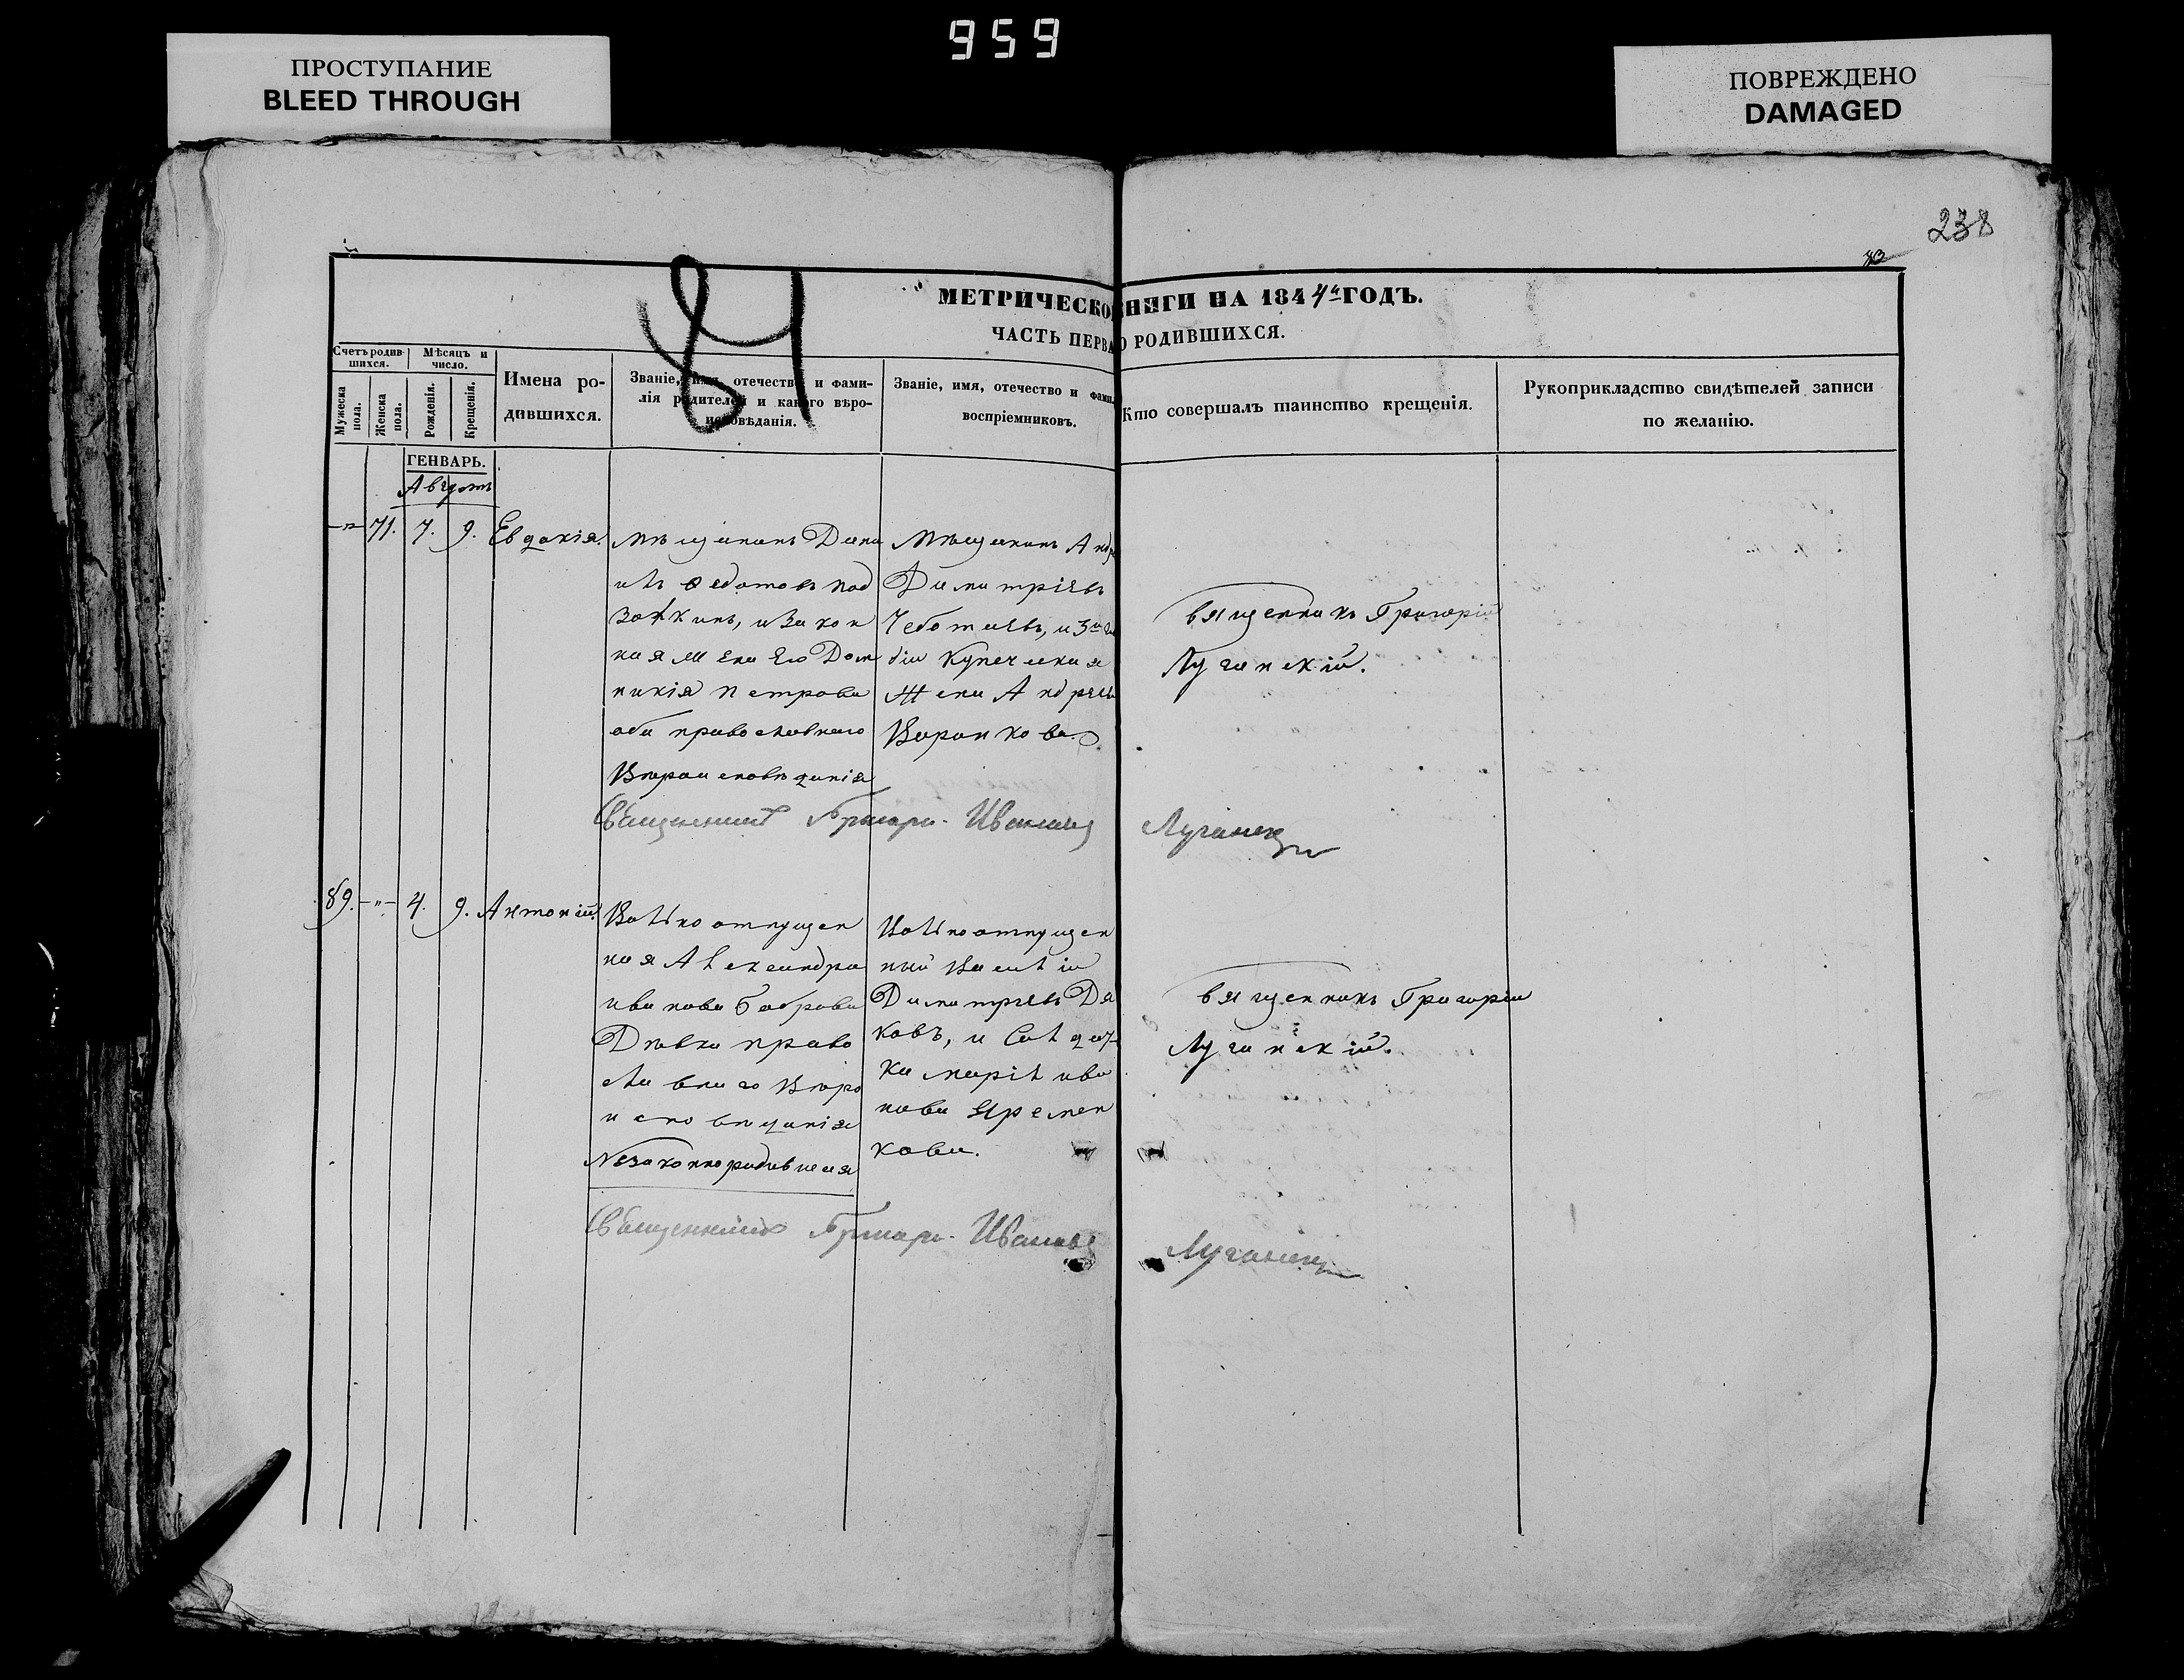 959
ПРОСТУПАНИЕ
BLEED THROUGH
ПОВРЕЖДЕНО
DAMAGED
238
84
МЕТРИЧЕСКО КНИГИ НА 1844 ГОДЪ.
ЧАСТЬ ПЕРВА О РОДИВШИХСЯ.
Счетъ родившихся.
Мѣсяцъ и число.
Мужеска пола.
Женска пола.
Рожденія.
Крещенія.
Имена родившихся.
Званіе, имя, отечество и фамилія родителей и какого вѣроисповѣданія.
Званіе, имя, отечество и фами
воспріемниковъ.
Кто совершалъ таинство крещенія.
Рукоприкладство свидѣтелей записи
по желанію.
ГЕНВАРЬ.
Августъ
-"- 71. 7. 9. Евдокія.
Мѣщанинъ Дани
илъ Ѳедотовъ Под
и Закон
ная Жена Его Дом
никія Петрова
оба православнаго
Вѣроисповѣданія
Мѣщанинъ Андр
Димитріевъ
Чеботаевъ, и
Купеческая
Жена Андреева
Воронкова.
Священникъ Григорій
Луганскій.
Священникъ Григори Ивановъ Луганск
89. -"- 4. 9. Антоній.
Вольноотпущен
ная Александра
Иванова Боброва
Дѣвка право
славнаго Вѣро
исповѣданія
Незаконнорадившаяся
Вольноотпущен
ный Василій
Димитріевъ Дя
ковъ, и Солдат
ка Марія Ива
нова Яремен
кова.
Священникъ Григорій
Луганскій.
Священникъ Григори Ивановъ Луганск